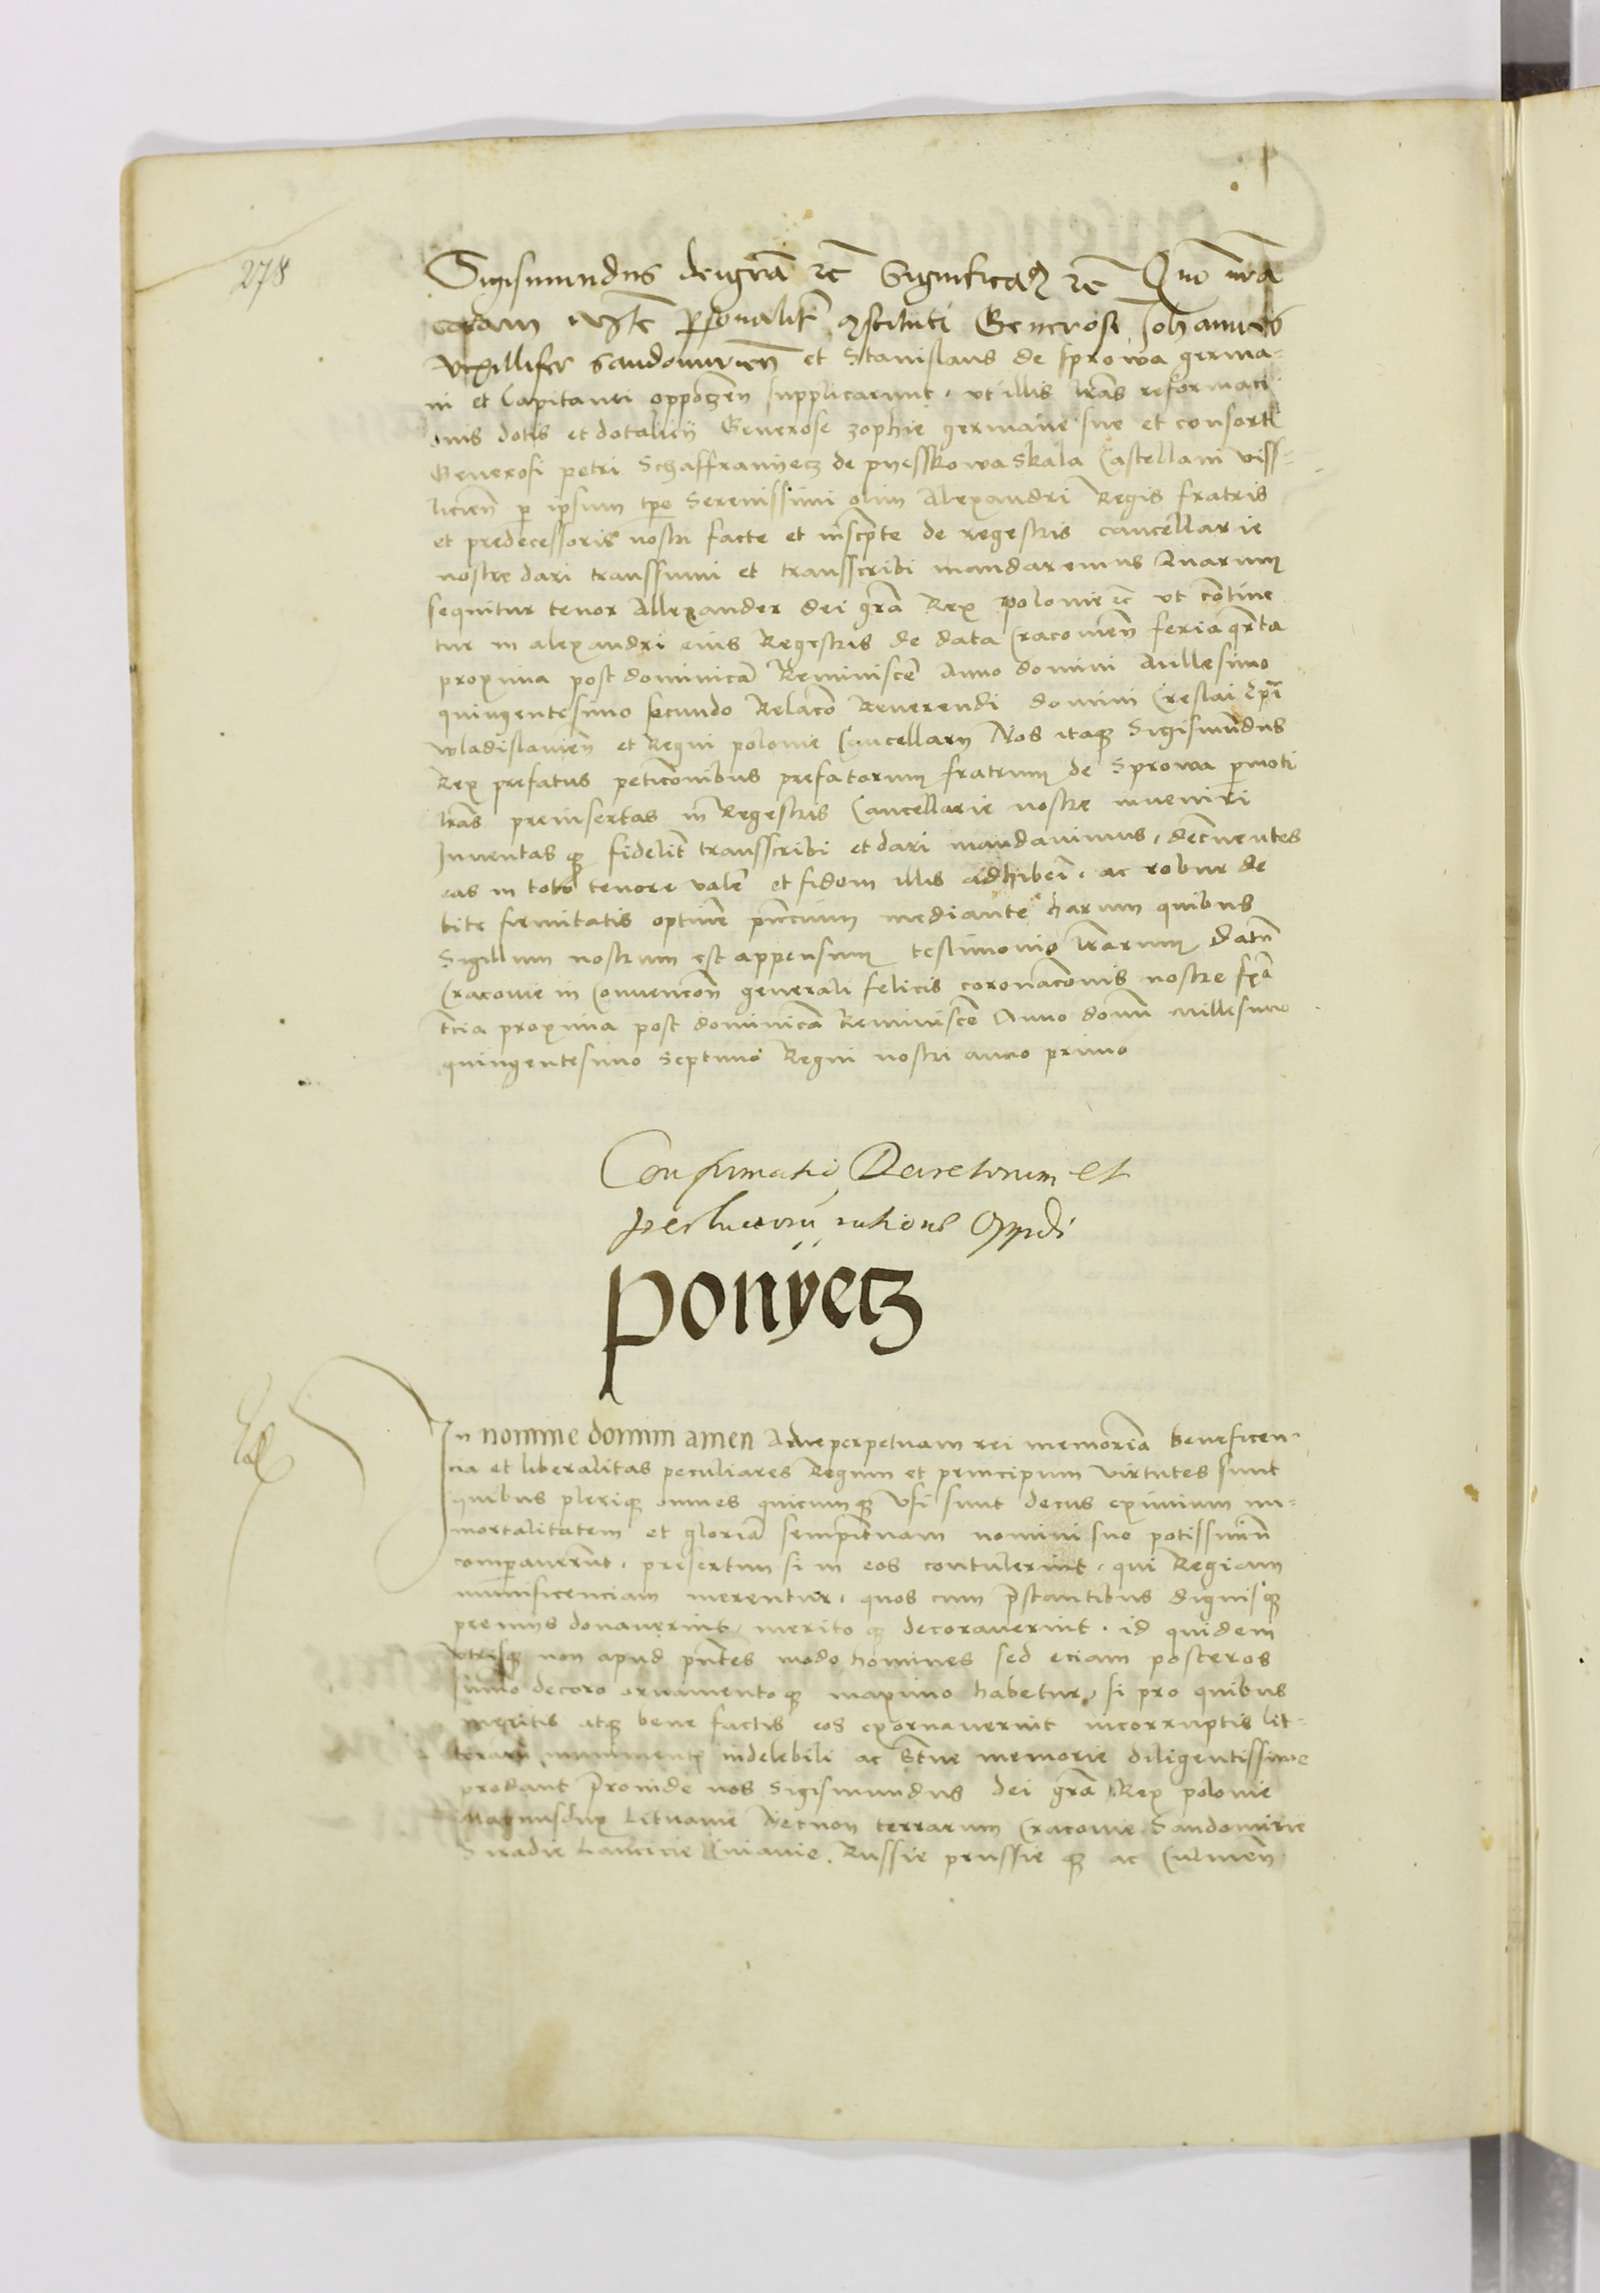 278
Sigismundus dei gra͞ etc Significamus etc Quo nra͞
coram maie͞ personalit͞ constituti Generosi Johannes
vexillifer Sandomirien͞ et Stanislaus de sprowa germa-
ni et Capitanei oppoczen͞ supplicarunt, ut illis lra͞s reformaci
onis dotis et dotalicij Generose zophie germane sue et consorti
Generosi petri Schaffranyecz de pyesskowa Skala Castellani viss-
licien͞ p ipsum tpe͞ Serenissimi olim Alexandri Regis fratris
et predecessoris nostri facte et inscpte de regestris cancellarie
nostre dari transsumi et transscribi mandaremus Quarum
sequitur tenor Allexander dei gra͞ Rex polonie etc ut contine
tur in alexandri eius Regestris de data Cracovien͞ feria qrta
proxima post dominica͞ Reminisce͞ Anno domini Millesimo
quingentesimo secundo Relaco͞ Reverendi domini Creslai Epi͞
wladislavien͞ et Regni polonie Cancellarij Nos itaqz Sigismundus
Rex prefatus peticionibus prefatorum fratrum de Sprowa pmoti
lra͞s preinsertas in͞ Regestris Cancellarie nostre inveniri
Inventas qz fidelit͞ transscribi et dari mandavimus, decnentes
eas in toto tenore vale͞ et fidem illis adhiberi, ac robur de
bite firmitatis optine͞ mediante harum quibus
Sigillum nostrum est appensum testimonio lra͞rum Datu͞
Cracovie in Convencon͞ generali felicis coronaco͞nis nostre fia͞
tcia proxima post dominica͞ Reminisce͞ Anno domi͞ Millesimo
quingentesimo Septimo Regni nostri anno primo
Confirmatio Decretorum et
ratione Oppidi
ponÿecz
In nomine domini amen Ad perpetuam rei memoria͞ beneficen-
cia et liberalitas peculiares Regum et principum virtutes sunt
quibus pleriqz omnes quicumqz usi sunt decus eximium im-
mortalitatem et gloria͞ sempit͞nam nomini suo potissimu͞
compaverunt, presertim si in eos contulerint, qui Regiam
munificenciam merentur, quos cum p͞stantibus dignisqz
premijs donaverint, meritoqz decoraverint, id quidem
utrisqz non apud pn͞tes modo homines sed eciam posteros
summo decoro ornamentoqz maximo habetur, si pro quibus
meritis atqz bene factis eos exornaverint incorruptis lit-
teraru͞ indelebili ac et͞ne memorie diligentissime
prodant Proinde nos Sigismundus dei gra͞ Rex polonie
Magnusdux Lituanie Necnon terrarum Cracovie Sandomirie
Siradie Lancicie Cuiavie, Russie prussie qz ac Culmen͞